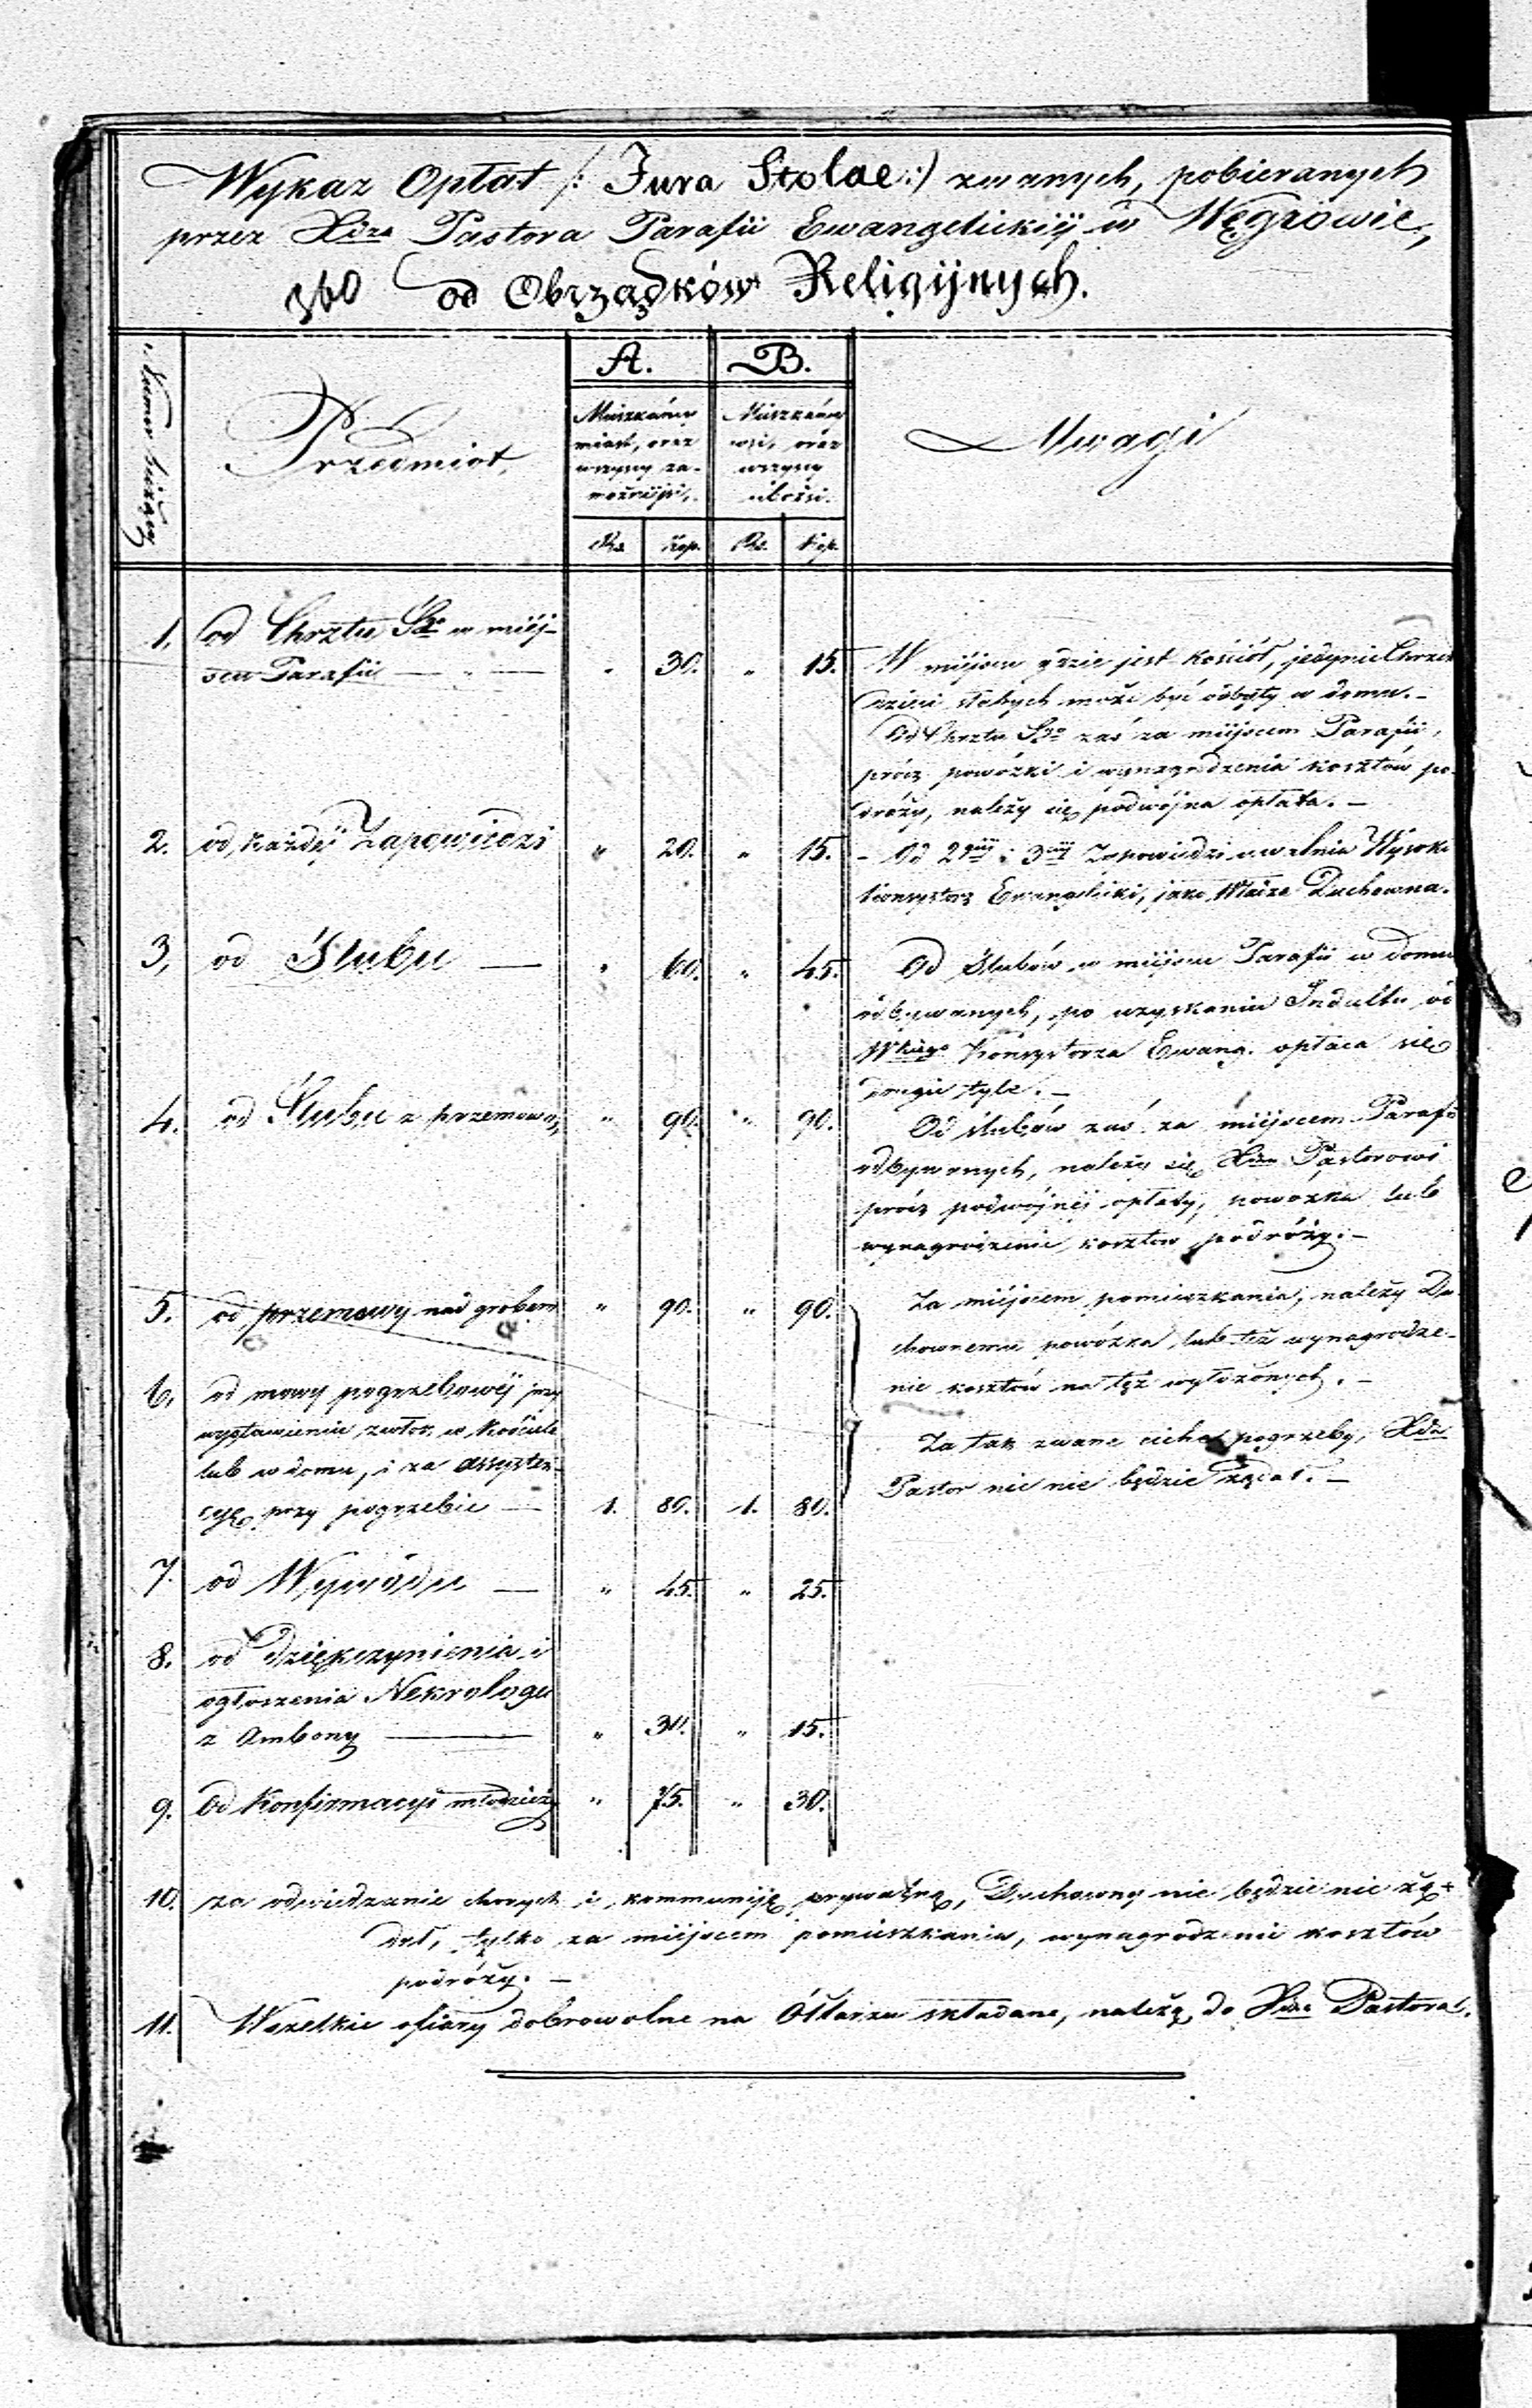 Wykaz Opłat /: Jura Stolae :/ zwanych, pobieranych
przez Xdza Pastora Parafii Ewangelickiéj w Węgrowie,
360 od Obrządków Religijnych.
Numer bieżący
Przedmiot
A.
Mieszkańcy
miast, oraz
wszyscy za-
możniejsi.
Rs. Kop.
B.
Mieszkańcy
wsi, oraz
wszyscy
ubożsi.
Rs. Kop.
Uwagi
1. od Chrztu Sgo w miéj-
scu Parafii — " — " 30. " 15.
W miéjscu gdzie jest kościół, jedynie Chrzest
dzieci słabych może być odbyty w domu. –
Od Chrztu Sgo zaś za miéjscem Parafii,
prócz powózki i wynagrodzenia kosztów po-
dróży, należy się podwójna opłata. –
2. od każdéj Zapowiedzi " 20. " 15.
– Od 2giéj i 3ciéj Zapowiedzi uwalnia Wysoki
Konsystorz Ewangelicki, jako Władza Duchowna.
3, od Ślubu — " 60. " 45.
Od Ślubów w miéjscu Parafii w domu
odbywanych, po uzyskaniu Indultu od
Wkiego Konsystorza Ewang. opłaca się
drugie tyle. –
4. od Ślubu z przemową " 90. " 90.
Od ślubów zaś za miéjscem Parafii
odbywanych, należy się Xdzu Pastorowi
prócz podwójnéj opłaty, powózka lub
wynagrodzenie kosztów podróży. –
5. od przemowy nad grobem " 90. " 90.
Za miéjscem pomieszkania, należy Du-
chownemu powózka, lub też wynagrodze-
nie kosztów na też wyłożonych. –
6. od mowy pogrzebowéj przy
wystawieniu zwłok w Kościele
lub w domu, i za assysten-
cyę przy pogrzebie — 1. 80. 1. 80.
Za tak zwane ciche pogrzeby, Xdz
Pastor nic nie będzie żądał. –
7. od Wywodu — " 45. " 25.
8. od Dziękczynienia i
ogłoszenia Nekrologu
z Ambony — " 30. " 15.
9. Od Konfirmacyi młodzieży " 75. " 30.
10. za odwiedzanie chorych i kommuniję prywatną, Duchowny nie będzie nic żą-
dał, tylko za miéjscem pomieszkania, wynagrodzenie kosztów
podróży. –
11. Wszelkie ofiary dobrowolne na Ołtarzu składane, należą do Xdza Pastora.